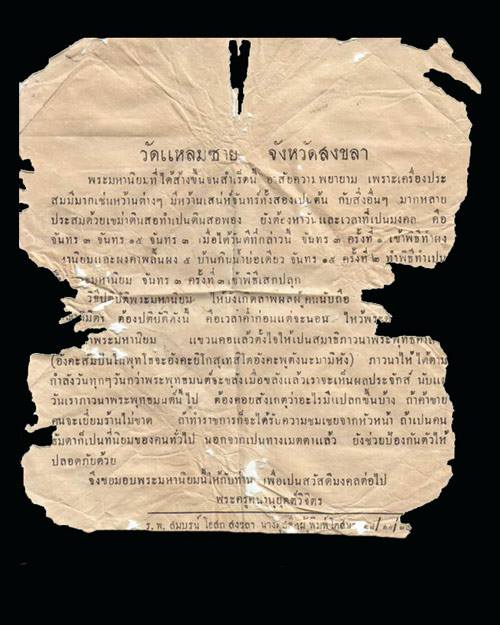 วัดแหลมซาย จังหวัดสงขลา
พระมหานิยมที่ได้สร้างขึ้นจนสำเร็จนี้ อาศัยความพยายาม เพราะเครื่องประ
สมมีมากเช่นหว้านต่างๆ มีหว้านเสน่ห์จันทร์ทั้งสองเป็นต้น กับสิ่งอื่นๆ มากหลาย
ประสมด้วยเขม่าดินสอทำเป็นดินสอพอง ยังต้องหาวันและเวลาที่เป็นมงคล คือ
จันทร ๓ จันทร ๑๕ จันทร ๓ เมื่อได้วันที่กล่าวนี้ จันทร ๓ ครั้งที่ ๑ เข้าพิธีทำผง
นิยมและผงคาพลั้นผง ๕ บ้านกับน้ำบ่อเดียว จันทร ๑๕ ครั้งที่ ๒ ทำพิธีทำเป็น
มหานิยม จันทร ๓ ครั้งที่ ๓ เข้าพิธีเสกปลุก
วิธีปฏิบัติพระมหานิยม ให้บังเกิดลาภผลผู้คนนับถือ
ต้องปฏิบัติดังนี้ คือเวลาค่ำก่อนแต่จะนอน ไหว้พระ
พระมหานิยม แขวนคอแล้วตั้งใจให้เป็นสมาธิภาวนาพระพุทธคุณ
(อังคะสัมปันโนพุทโธจะอังคะยิโกสุเทสิโตอังคะพุตังนะมามิหัง) ภาวนาให้ได้ตาม
กำลังวันทุกๆวันกว่าพระพุทธมนต์จะขลังเมื่อขลังแล้วเราจะเห็นผลประจักส์ นับแต่
วันเราภาวนาพระพุทธมนต์นี้ไป ต้องคอยสังเกตว่าอะไรมีแปลกขึ้นบ้าง ถ้าค้าขาย
คนจะเยี่ยมร้านไม่ขาด ถ้าทำราชการก็จะได้รับความชมเชยจากหัวหน้า ถ้าเป็นคน
ธัมดาก็เป็นที่นิยมของคนทั่วไป นอกจากเป็นทางเมตตาแล้ว ยังช่วยป้องกันตัวให้
ปลอดภัยด้วย
จึงขอมอบพระมหานิยมนี้ให้กับท่าน เพื่อเป็นสวัสดิมงคลต่อไป
พระครูคนานุยุตต์วิจิตร
ร. พ. สมบูรณ์ โอสถ สงขลา